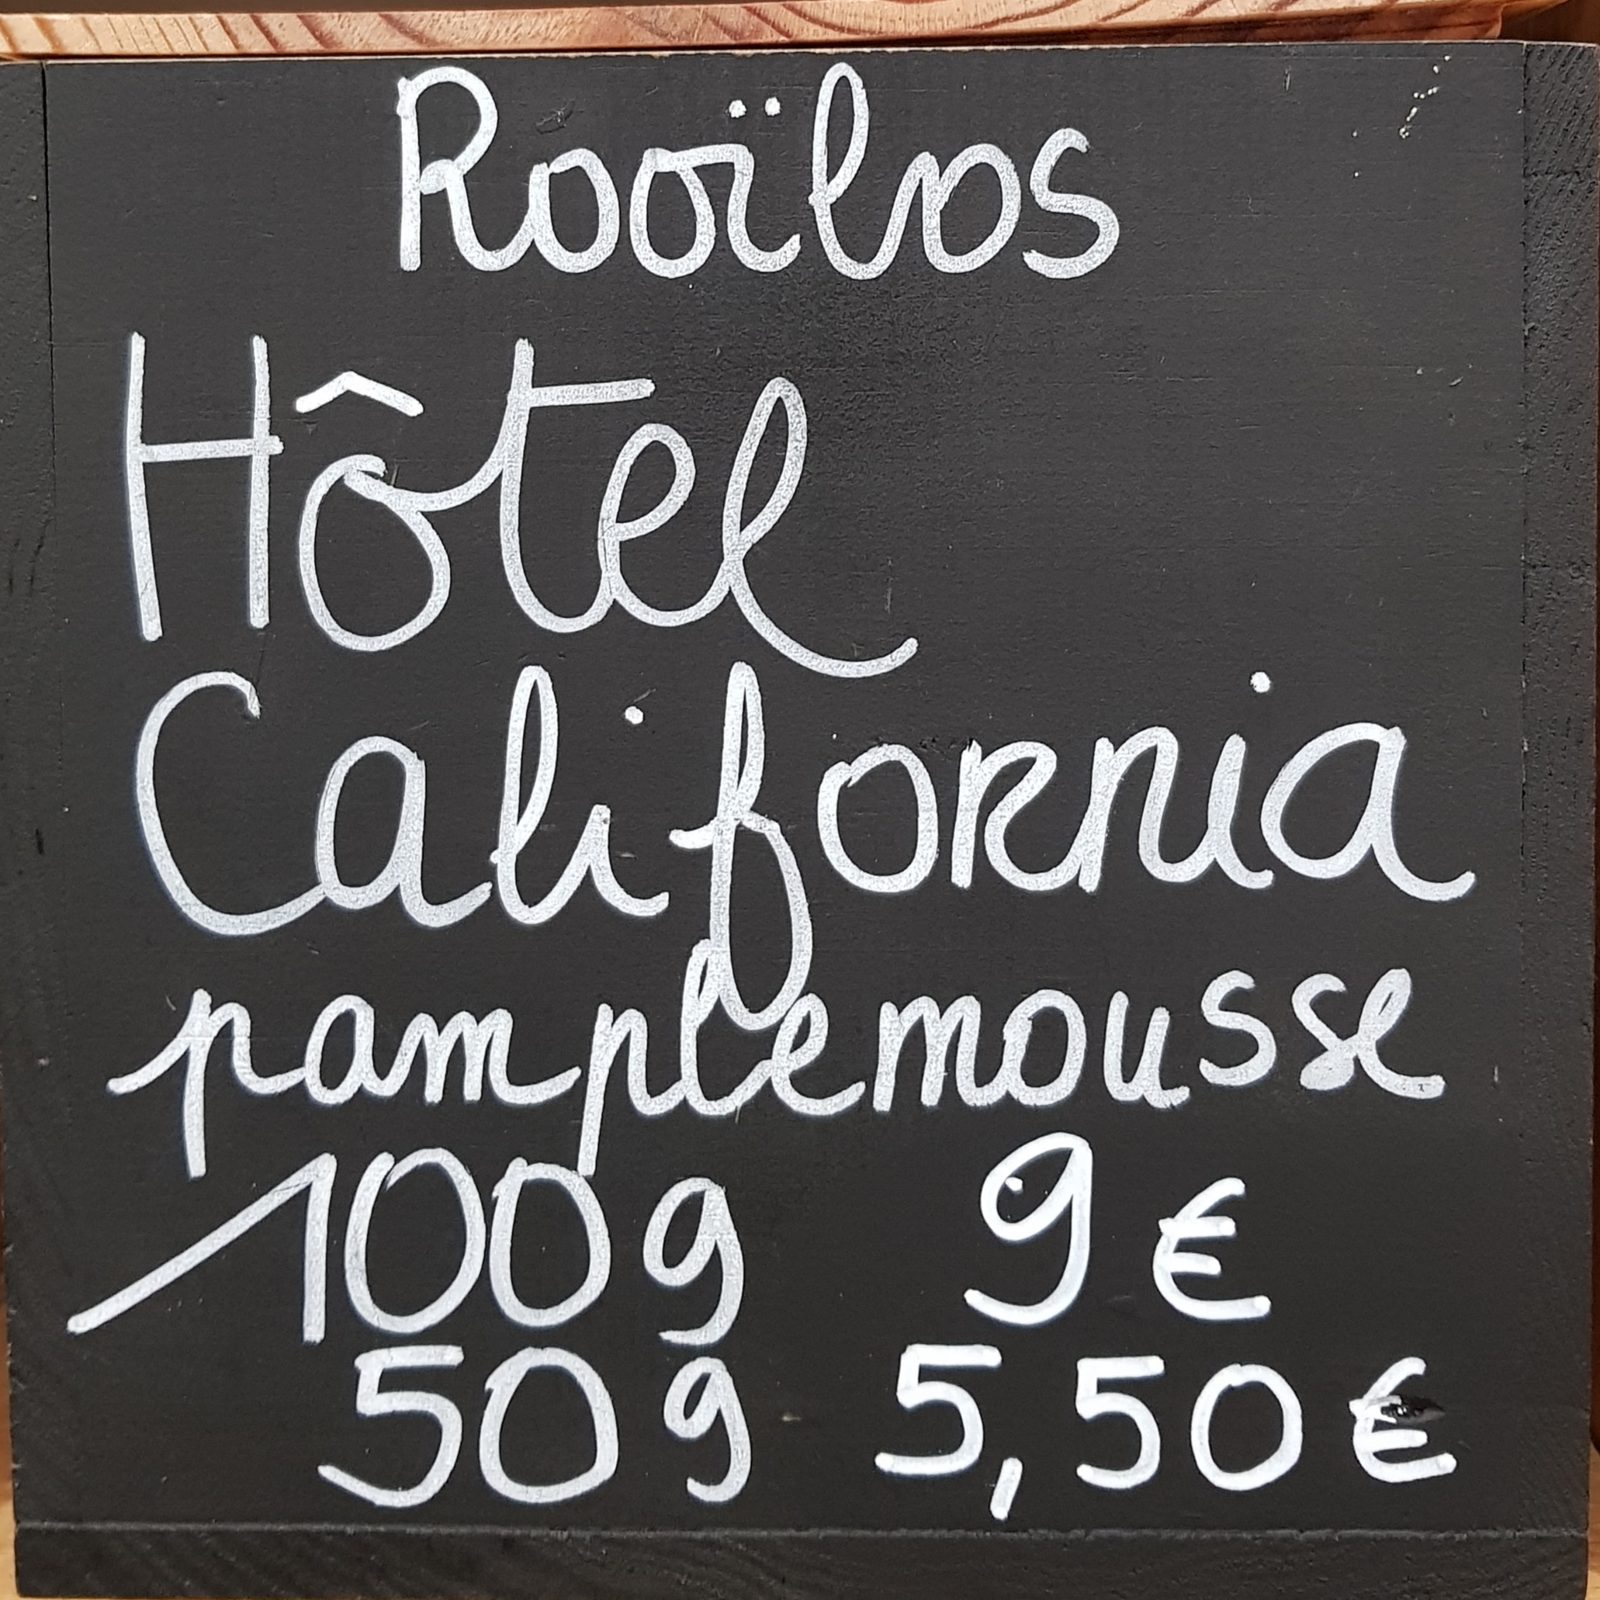 Rooïbos
Hôtel
California
pamplemousse
100g 9€
50g 5,50€